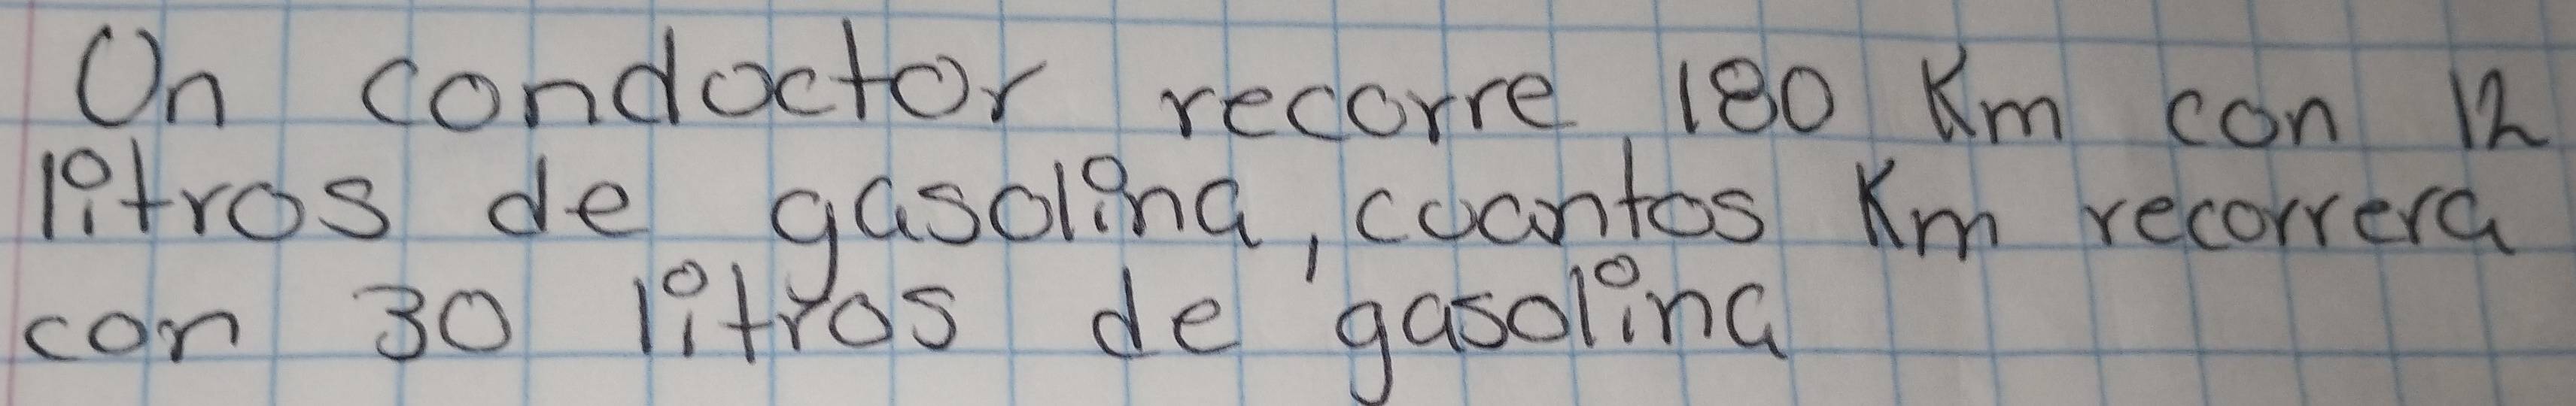 Un conductor recorre 180 Km con 12
litros de gasolina, cuantos Km recorrera
con 30 litros de gasolina